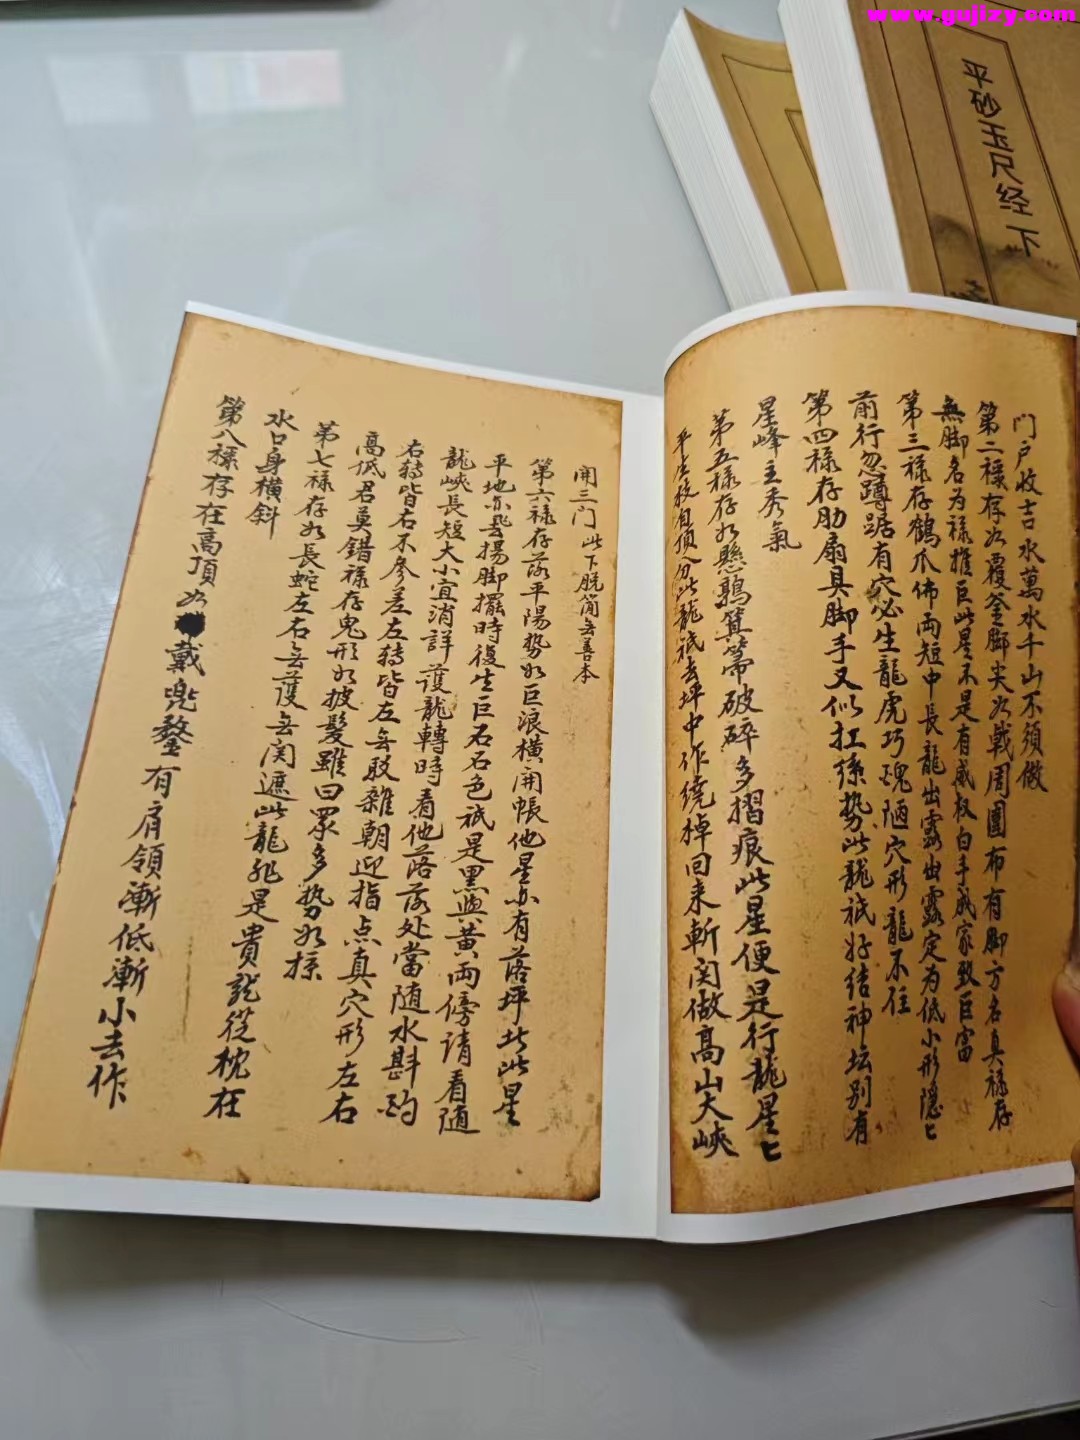 www.gujizy.com
平砂玉尺经 下
门户收吉水萬水千山不須做
第二祿存如覆釜脚尖如戟周圍布有脚方名真祿存
無脚名为祿堆巨此星不是有威权白手成家致巨富
第三祿存鶴爪佈両短中長龍出露出露定为低小形隠匕
前行忽蹲踞有穴必生龍虎巧醜陋穴形龍不住
第四祿存肋扇具脚手又似扛絲势此龍祇好结神坛别有
星峰主秀氣
第五样存如懸鶉箕箒破碎多摺痕此星便是行龍星匕
平生枝有頂八分此龍祇去坪中作绕棹回来斬关做高山大峽
開三门此下脱简无善本
第六祿存落平陽势如巨浪横開帳他星亦有落坪此此星
平地亦飞揚脚擺時復生巨石石色祇是黑與黃両傍请看随
龍峽長短大小宜消詳護龍轉時看他落落处當随水斟酌
右转皆右不參差左转皆左无駁雜朝迎指点真穴形左右
高低君莫錯祿存鬼形如披髮雖曰眾多势如
第七祿存如長蛇左右无護无関遮此龍非是貴龍從枕在
水口身横斜
第八祿存在高頂如戴兜鍪有肩領漸低漸小去作